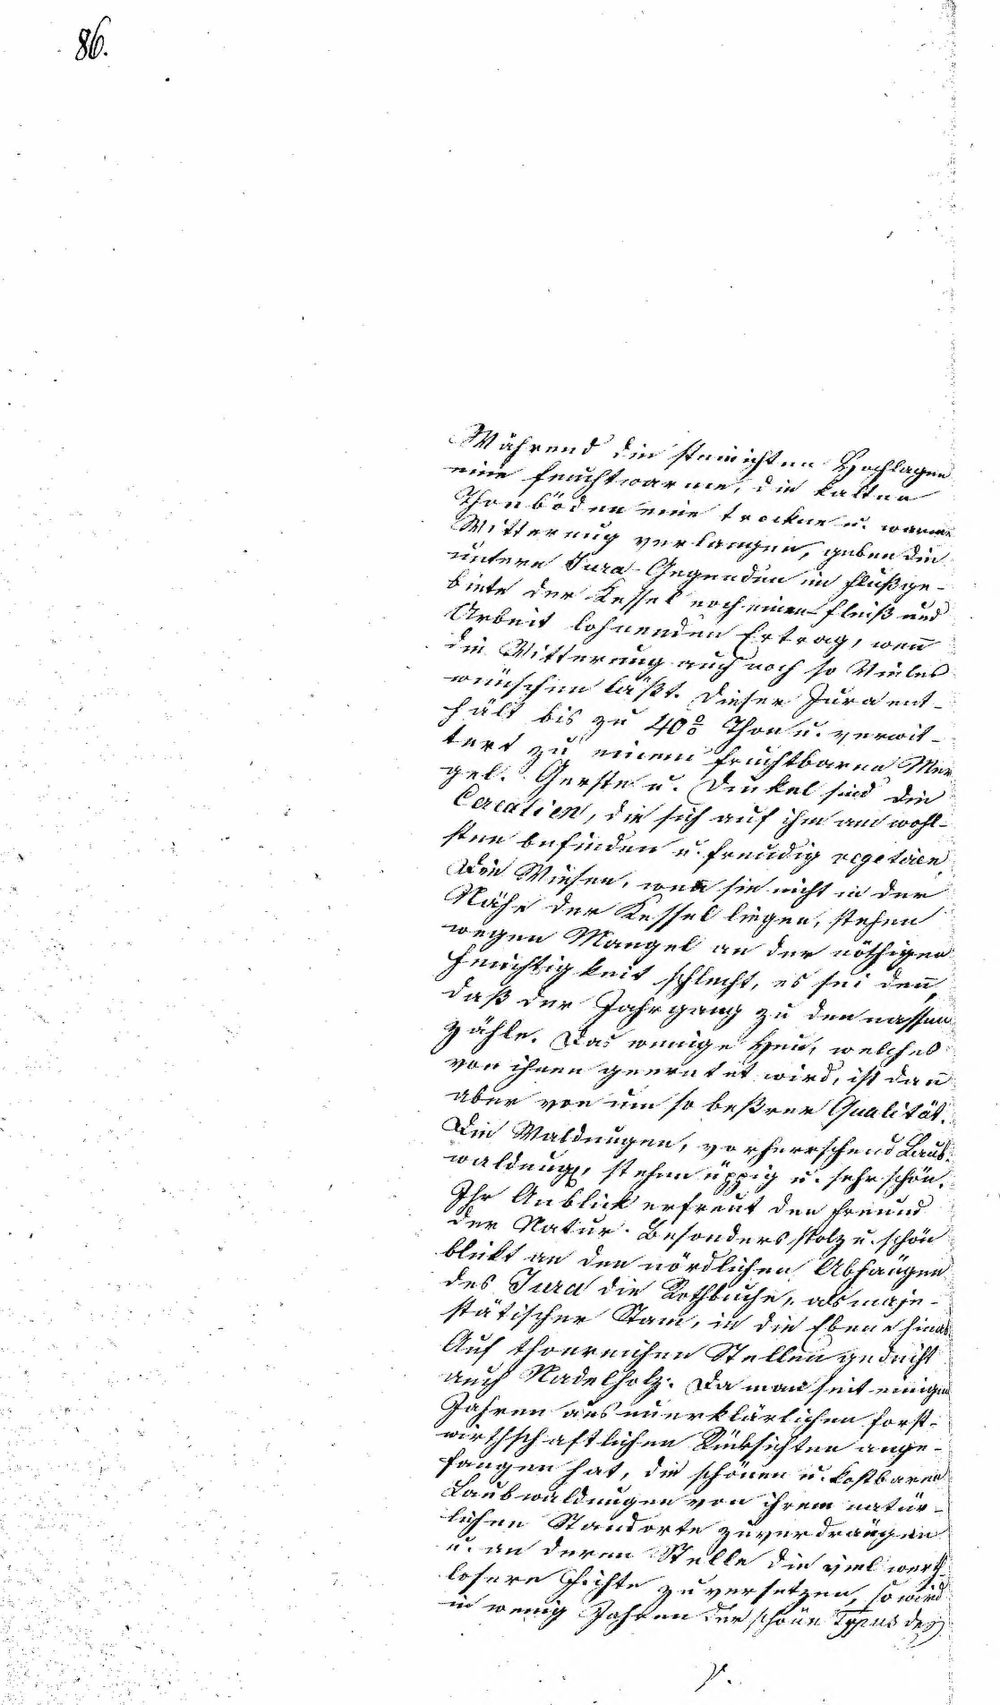 86.
Während die steinichten Hochlagen
eine feuchtwarme, die kalten
Thonböden eine trockne u. warme
Witterung verlangen, geben die
untern Jura-Gegenden im Flußge-
biete der Kessel noch einen Fleiß und
Arbeit lohnenden Ertrag, wen̄
die Witterung auch noch so Vieles
wünschen läßt. Dieser Jura ent-
hält bis zu 40% Thon u. verwit-
tert zu einem fruchtbaren Mer
gel. Gerste u. Dinkel sind die
Cerealien, die sich auf ihm am wohl-
sten befinden u. freudig vegetiren.
Die Wiesen, wen sie nicht in der
Nähe der Kessel liegen, stehen
wegen Mangel an der nöthigen
Feuchtigkeit schlecht, es sei den̄,
daß der Jahrgang zu den nassen
zähle. Das wenige Heu, welches
von ihnen geerntet wird, ist dan̄
aber von um so beßrer Qualität.
Die Waldungen, vorherrschend Laub-
waldung, stehen üppig u. sehr schön.
Ihr Anblick erfreut den Freund
der Natur. Besonders stolz u. schön
blickt an den nördlichen Abhängen
des Jura die Rothbuche, als maje-
stätischer Stam, in die Ebene hinab.
Auf thonreichen Stellen gedeiht
auch Nadelholz. Da man seit einigen
Jahren aus unerklärlichen forst-
wirthschaftlichen Rücksichten ange-
fangen hat, die schönen u. kostbaren
Laubwaldungen von ihrem natür-
lichen Standorte zu verdrängen
u. an deren Stelle die viel werth-
losere Fichte zu versetzen, so wird
in wenig Jahren der schöne Typus des